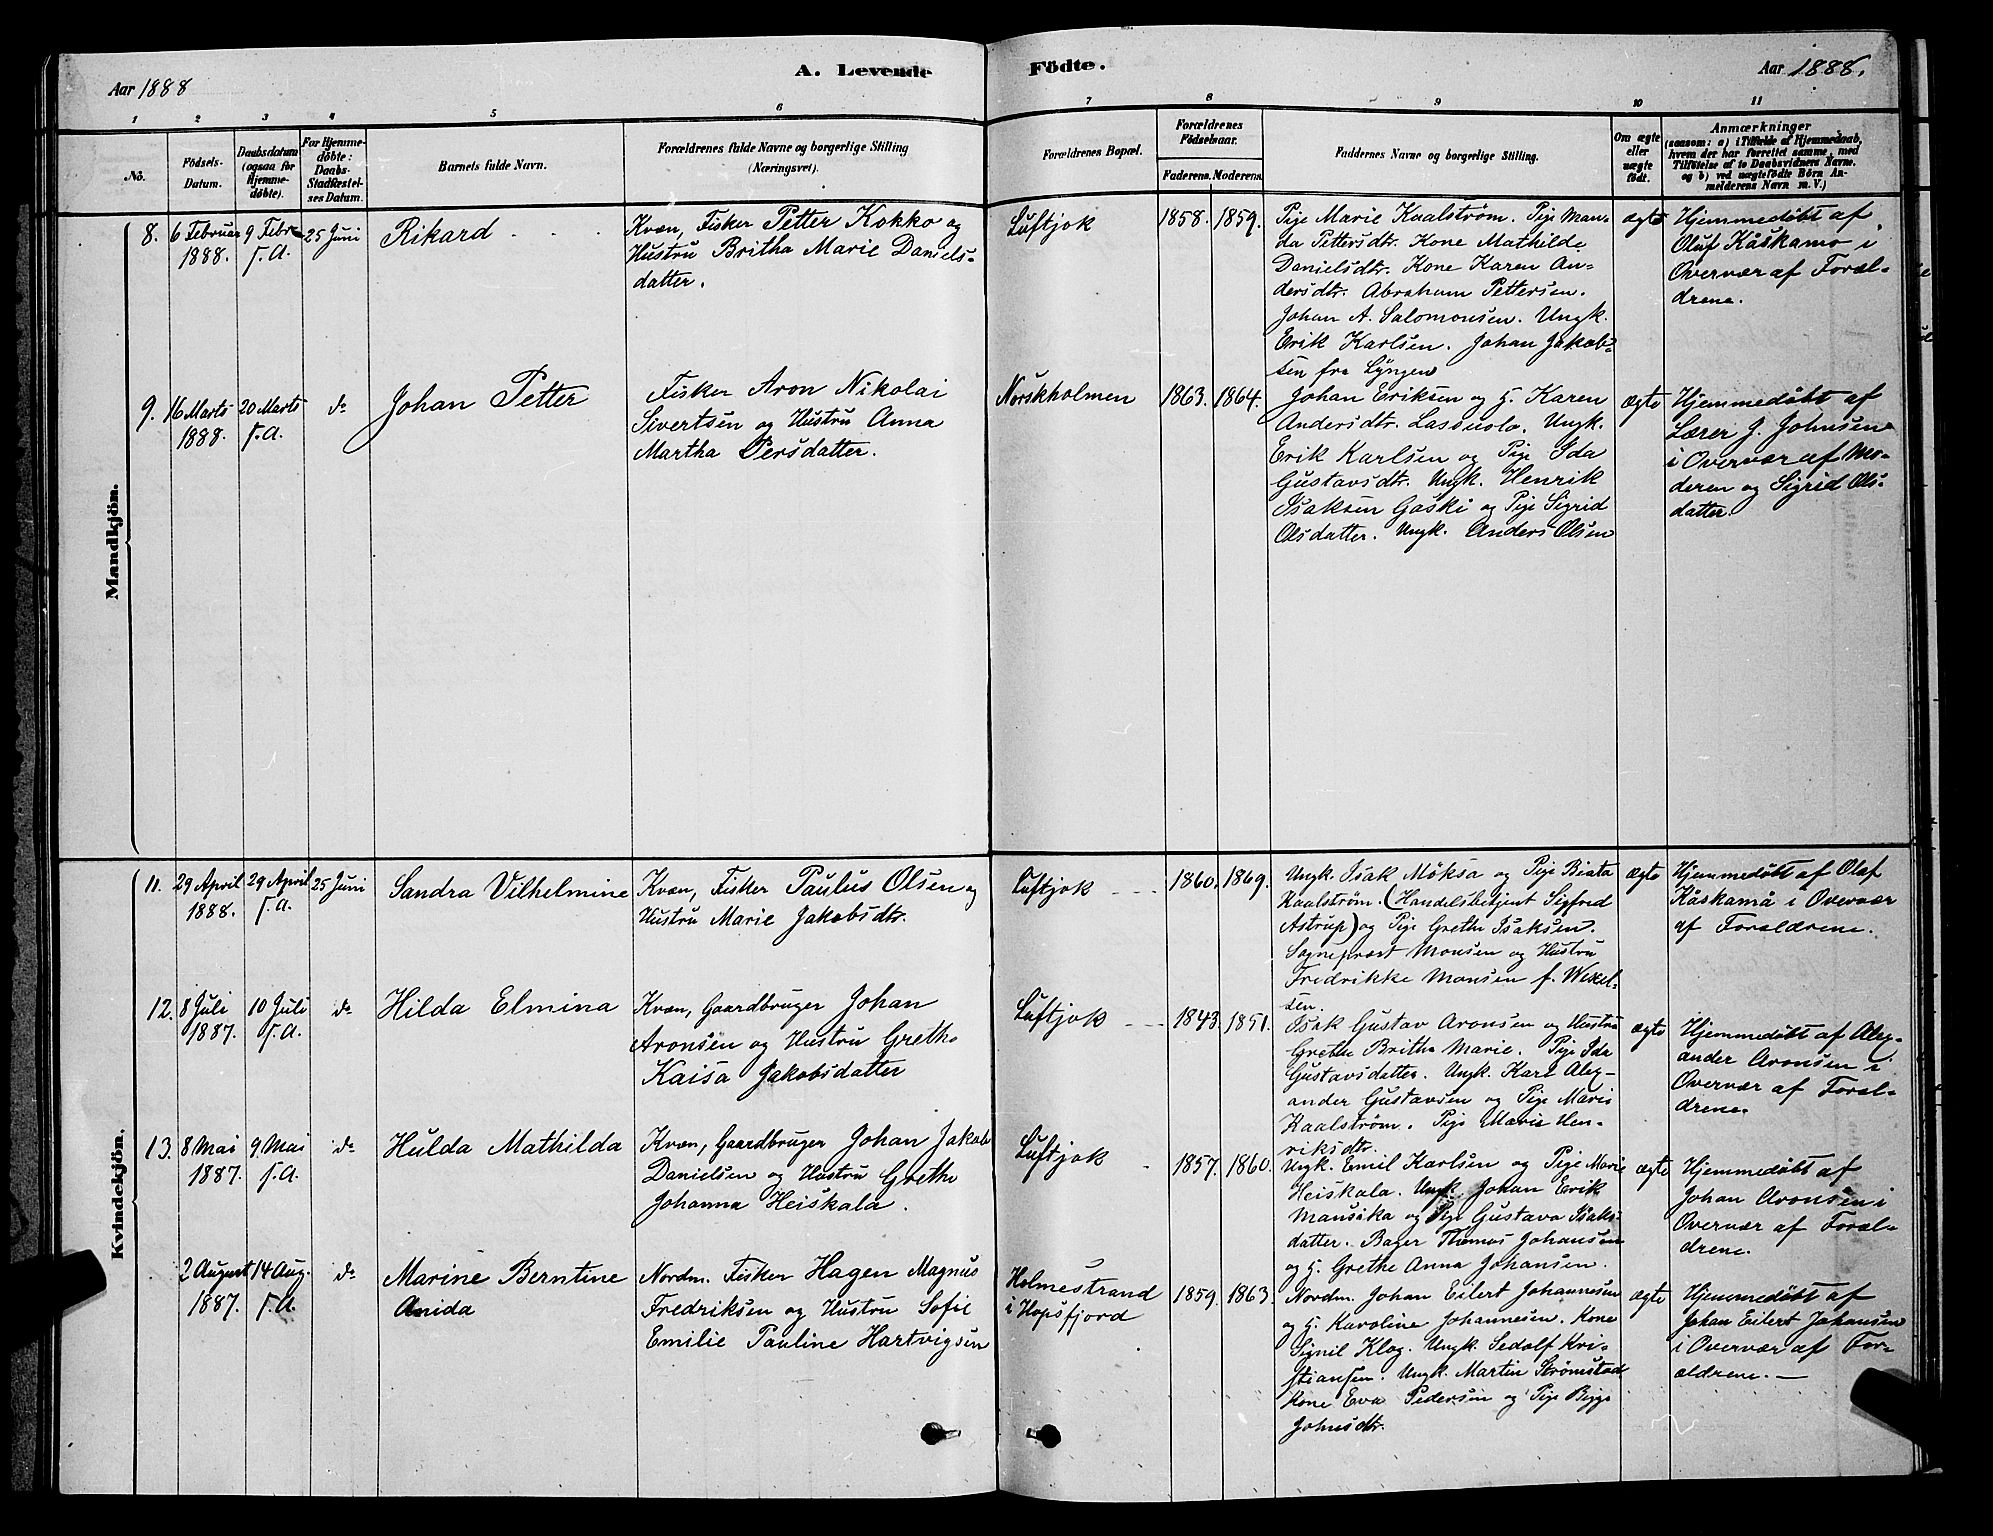 A. Levende Födte.
Aar 1888
Aar 1888.
1 2 3 4 5 6 7 8 9 10 11
No.
Födsels-
Datum.
Daabsdatum
(ogsaa for
Hjemme-
döbte).
For Hjemme-
döbte:
Daabs-
Stadfæstel-
ses Datum.
Barnets fulde Navn.
Forældrenes fulde Navne og borgerlige Stilling
(Næringsvei).
Forældrenes Bopæl.
Forældrenes
Födselsaar.
Faderens. Moderens.
Faddernes Navne og borgerlige Stilling.
Om ægte
eller
uægte
födt.
Anmærkninger
(saasom: a) i Tilfælde af Hjemmedaab,
hvem der har forrettet samme, med
Tilföielse af to Daabsvidners Navne.
og b) ved uægtefödte Börn An-
melderens Navn m. V.)
Mandkjön.
8.
6 Februar
1888.
9 Febr.
s. A.
25 Juni
Rikard
Kvæn, Fisker Petter Kokko og
Hustru Britha Marie Daniels-
datter.
Luftjok
1858. 1859.
Pige Marie Kaalström. Pige Man-
da Pettersdtr. Kone Mathilde
Danielsdtr. Kone Karen An-
dersdtr. Abraham Pettersen.
Johan A. Salomonsen. Ungk.
Erik Karlsen. Johan Jakob-
sen fra Lyngen
ægte
Hjemmedøbt af
Oluf Kåskamo i
Overvær af Foræl-
drene.
9.
16 Marts
1888.
20 Marts
s. A.
do
Johan Petter
Fisker Aron Nikolai
Sivertsen og Hustru Anna
Martha Persdatter.
Norskholmen
1863. 1864.
Johan Eriksen og H. Karen
Andersdtr. Lassuola. Ungk.
Erik Karlsen og Pige Ida
Gustavsdtr. Ungk. Henrik
Isaksen Gaski og Pige Sigrid
Olsdatter. Ungk. Anders Olsen
ægte
Hjemmedøbt af
Lærer J. Johnsen
i Overvær af Mo-
deren og Sigrid Ols-
datter.
Kvindekjön.
11.
29 April
1888.
29 April
s. A.
25 Juni
Sandra Vilhelmine
Kvæn, Fisker Paulus Olsen og
Hustru Marie Jakobsdtr.
Luftjok
1860. 1869.
Ungk. Isak Möksa og Pige Biata
Kaalström. (Handelsbetjent Sigfred
Astrup) og Pige Grethe Isaksen.
Sognepræst Monsen og Hustru
Fredrikke Monsen f. Wexel-
sen.
ægte
Hjemmedøbt af Olaf
Kåskamå i Overvær
af Forældrene.
12.
8 Juli
1887.
10 Juli
s. A.
do
Hilda Elmina
Kvæn, Gaardbruger Johan
Aronsen og Hustru Grethe
Kaisa Jakobsdatter
Luftjok
1843. 1851.
Isak Gustav Aronsen og Hustru
Grethe Britha Marie. Pige Ida
Gustavsdatter. Ungk. Karl Alex-
ander Gustavsen og Pige Marie
Kaalström. Pige Marie Hen-
riksdtr.
ægte
Hjemmedøbt af Alex-
ander Aronsen i
Overvær af Foræl-
drene.
13.
8 Mai
1887.
9 Mai
s. A.
do
Hulda Mathilda
Kvæn, Gaardbruger Johan Jakob
Danielsen og Hustru Grethe
Johanna Heiskala.
Luftjok
1857. 1860.
Ungk. Emil Karlsen og Pige Marie
Heiskala. Ungk. Johan Erik
Mansika og Pige Gustava Isaks-
datter. Bager Thomas Johansen
og H. Grethe Anna Johansen.
ægte
Hjemmedøbt af
Johan Aronsen i
Overvær af Foræl-
drene.
2 August
1887.
14 Aug.
s. A.
do
Marine Berntine
Anida
Nordm. Fisker Hagen Magnus
Fredriksen og Hustru Sofie
Emilie Pauline Hartvigsen
Holmestrand
i Hopsfjord
1859. 1863.
Nordm. Johan Eilert Johannesen
og H. Karoline Johannesen. Kone
Signil Klog. Ungk. Sedolf Kri-
stiansen. Ungk. Martin Strömstad
Kone Eva Pedersen og Pige Bigge
Johnsdtr.
ægte
Hjemmedøbt af
Johan Eilert Johansen
i Overvær af For-
ældrene.